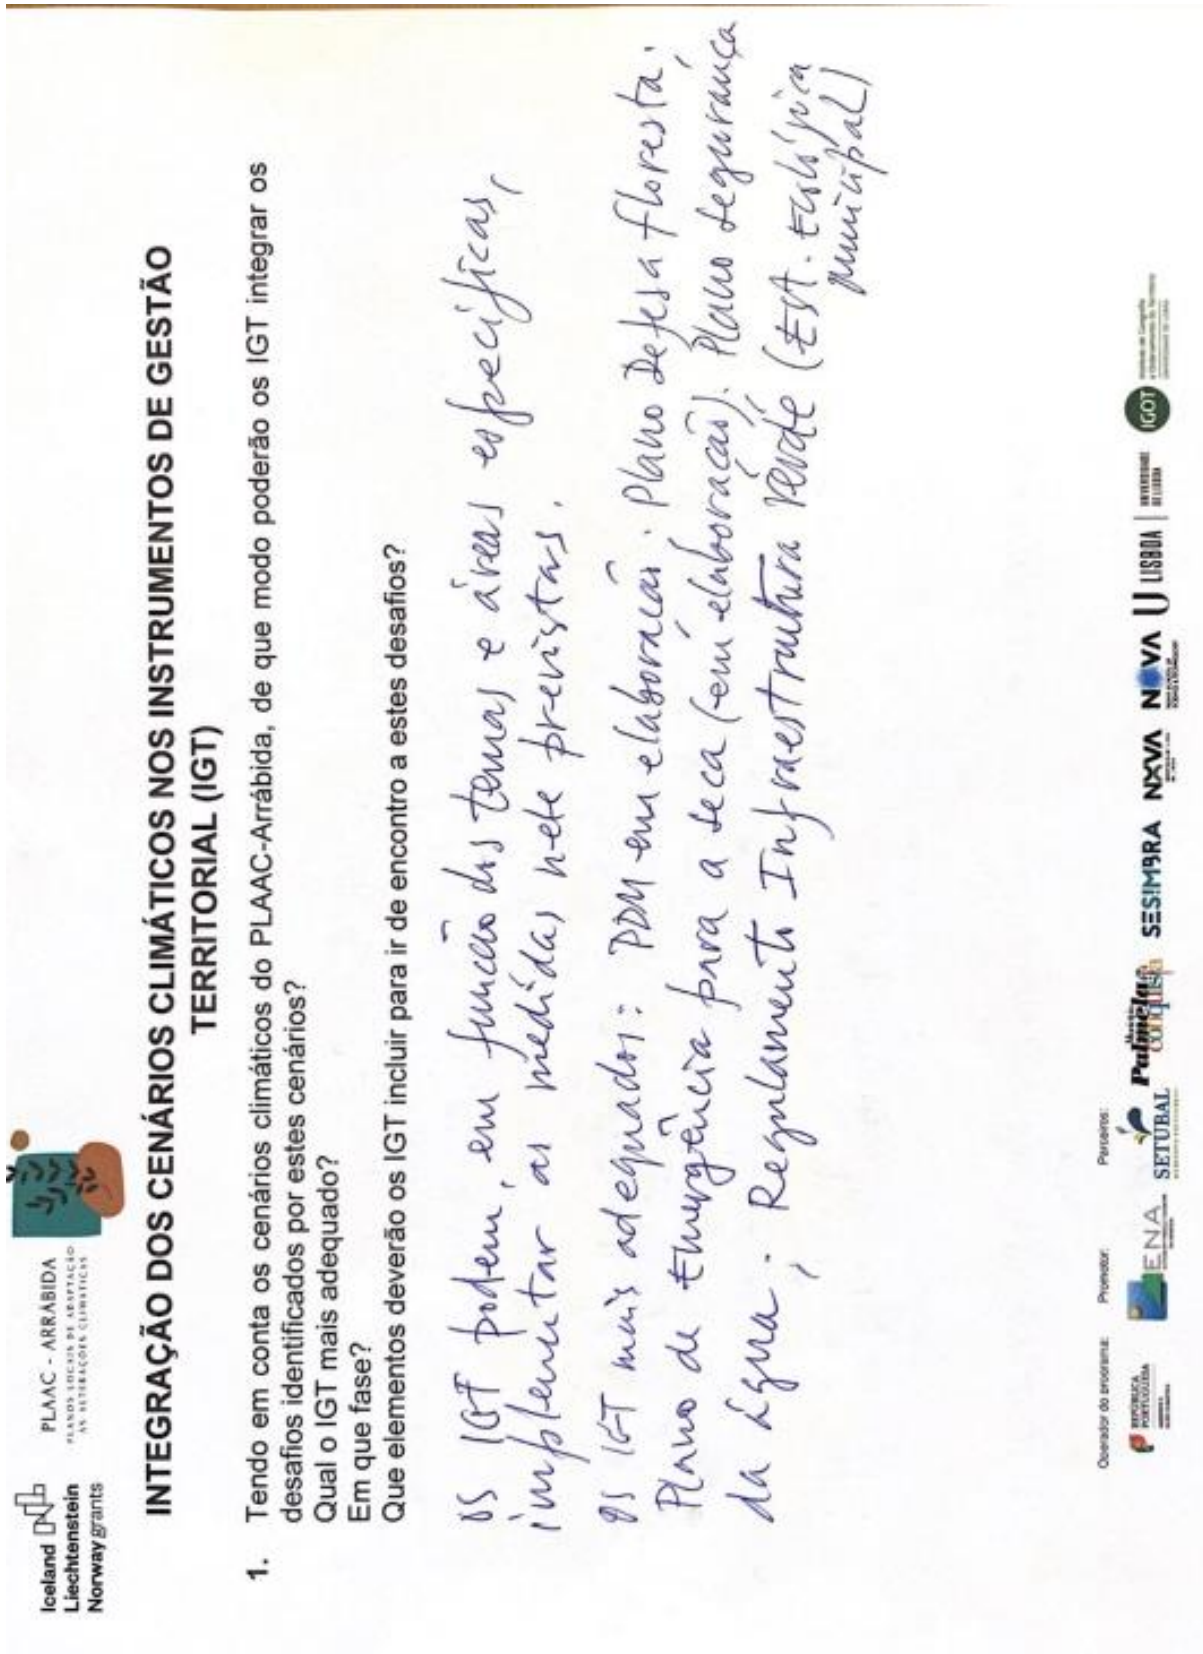 Iceland
Liechtenstein
Norway grants
PLAAC - ARRÁBIDA
PLANOS LOCAIS DE ADAPTAÇÃO
ÀS ALTERAÇÕES CLIMÁTICAS
INTEGRAÇÃO DOS CENÁRIOS CLIMÁTICOS NOS INSTRUMENTOS DE GESTÃO
TERRITORIAL (IGT)
1. Tendo em conta os cenários climáticos do PLAAC-Arrábida, de que modo poderão os IGT integrar os
desafios identificados por estes cenários?
Qual o IGT mais adequado?
Em que fase?
Que elementos deverão os IGT incluir para ir de encontro a estes desafios?
Os IGT podem, em função dos temas e áreas específicas,
implementar as medidas nele previstas.
Os IGT mais adequados: PDM em elaboração. Plano Defesa Floresta;
Plano de Emergência para a seca (em elaboração); Plano Segurança
da Água; Regulamento Infraestrutura Verde (Est. Ecológica
municipal)
Operador do programa:
Promotor:
Parceiros:
REPÚBLICA
PORTUGUESA
ENA
SETÚBAL
Palmela
conquista
SESIMBRA
NOVA
NOVA
U LISBOA
UNIVERSIDADE
DE LISBOA
IGOT